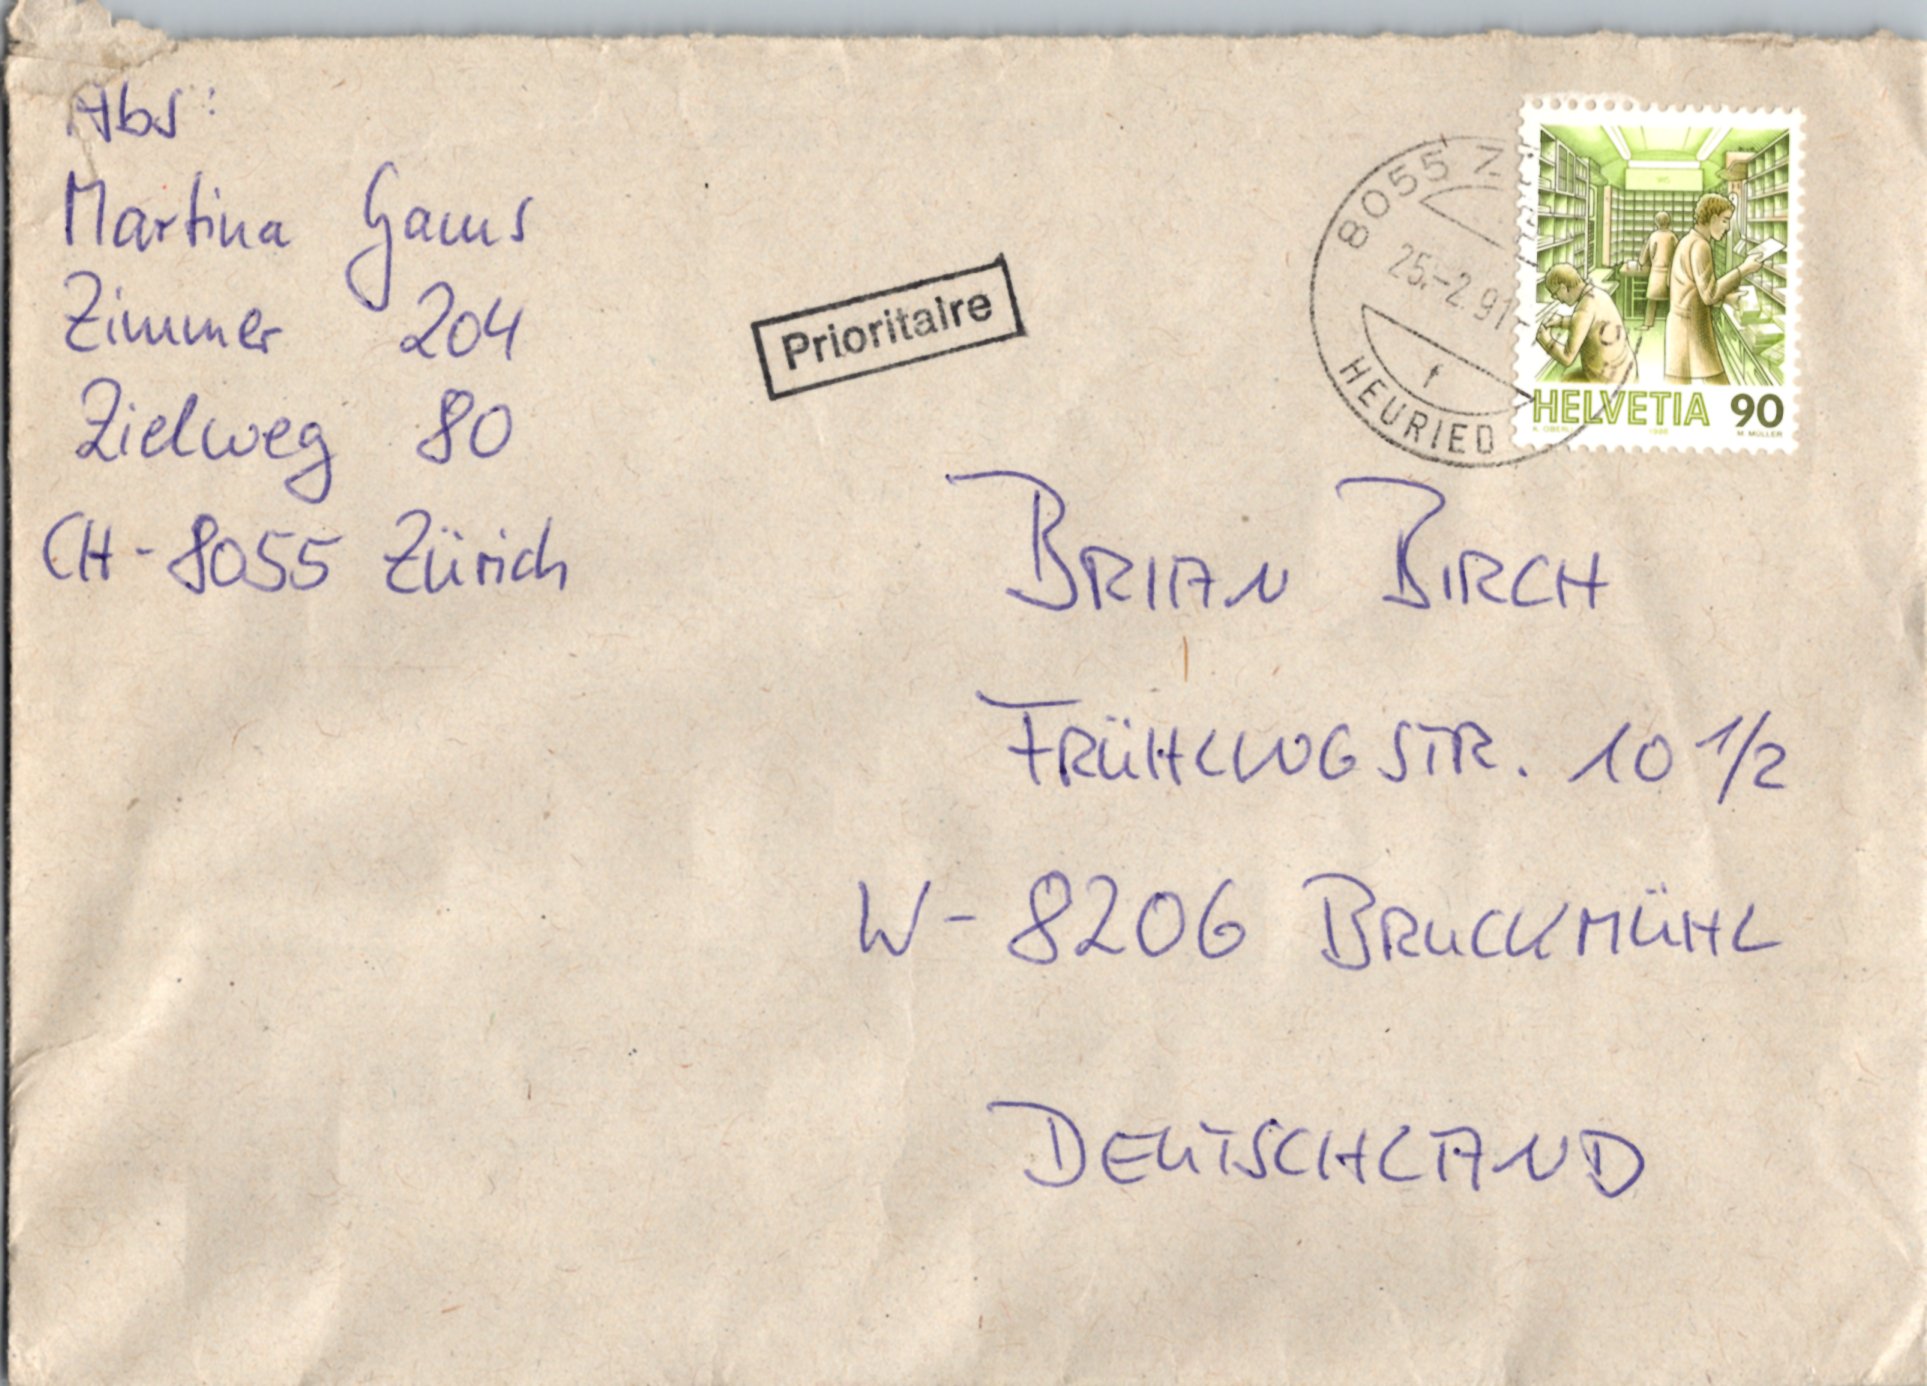 Abs:
Martina Gams
Zimmer 204
Zielweg 80
CH-8055 Zürich
Prioritaire
8055 Z
25.-2.91
HEURIED
HELVETIA 90
M. MÜLLER
BRIAN BIRCH
FRÜHLINGSTR. 10 1/2
W- 8206 BRUCKMÜHL
DEUTSCHLAND